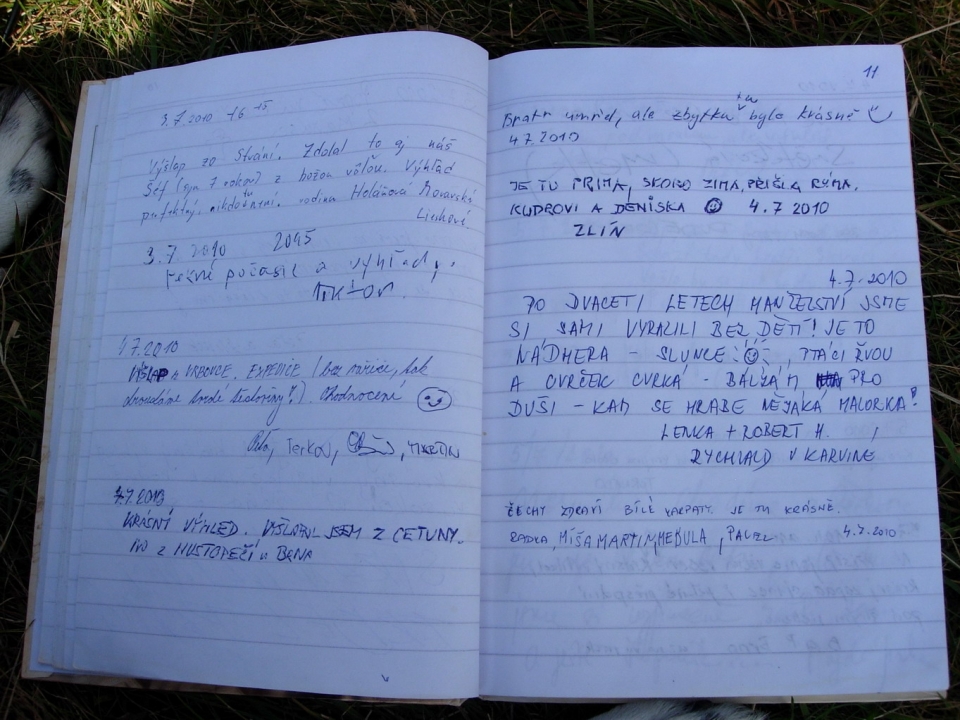 3.7.2010 16 15
Výšlap zo Strání. Zdolal to aj náš
šéf (syn 7 rokov) z božou vôľou. Výhľad
perfektný, nikto tu není. rodina Holáňová Moravská
Lieskové
3.7.2010 2045
Pekné počasie a výhľad,
VIKTOR.
4.7.2010
VÝŠLAP z VRBOVCE. EXPEDICE (bez vařiče, tak
chroupáme tvrdé těstoviny!). Ohodnocení
Péťa, Terka, MARTIN
4.7.2010
KRÁSNÝ VÝHLED. VYŠLAPAL JSEM Z CETUNY.
IVO Z HUSTOPEČÍ u BRNA
11
Bratr umřel, ale zbytku tu bylo krásně
4.7.2010
JE TU PRIMA, SKORO ZIMA, PŘIŠLA RÝMA.
KUDROVI A DENISKA 4.7 2010
ZLÍN
4.7.2010
PO DVACETI LETECH MANŽELSTVÍ JSME
SI SAMI VYRAZILI BEZ DĚTÍ! JE TO
NÁDHERA - SLUNCE, PTÁCI ŘVOU
A CVRČEK CVRKÁ - BALZÁM PRO
DUŠI - KAM SE HRABE NĚJAKÁ MALORKA!
LENKA + ROBERT H.
RYCHVALD U KARVINÉ
ČECHY ZDRAVÍ BÍLÉ KARPATY. JE TU KRÁSNĚ.
RADKA, MÍŠA MARTIN, MEĎULA, PAVEL 4.7.2010